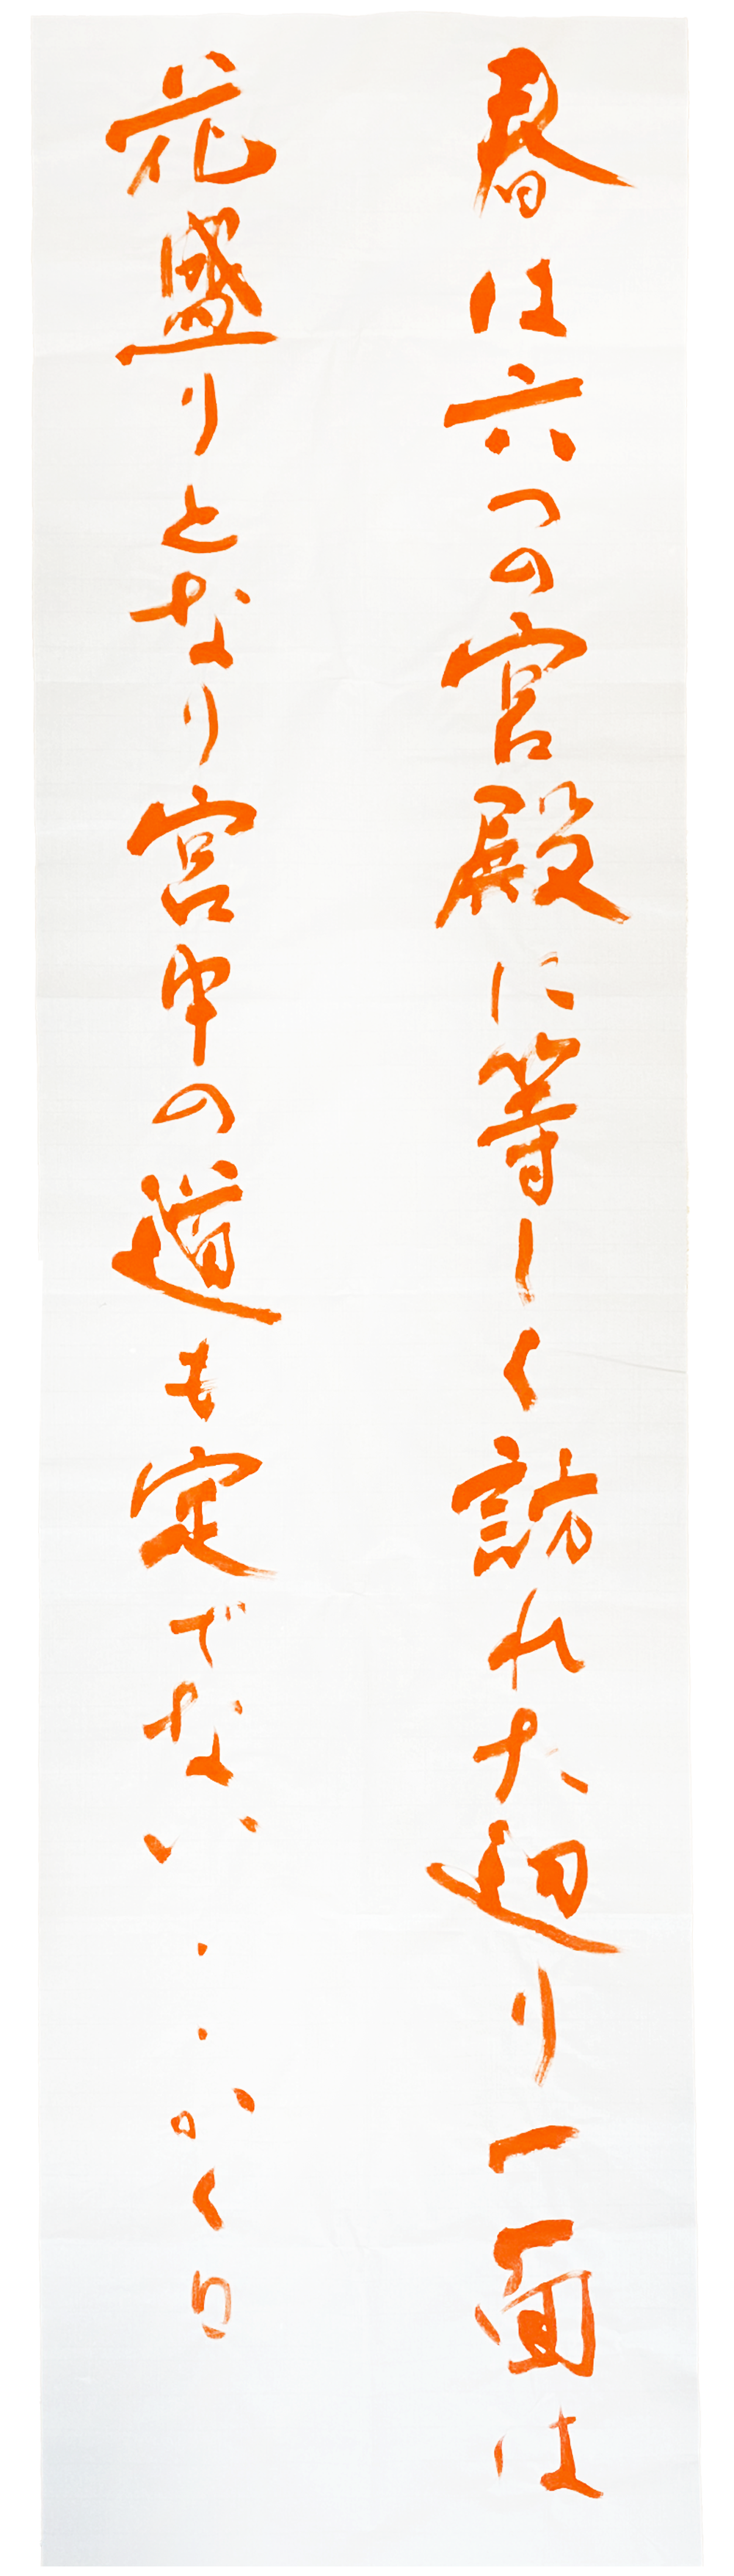 春は六つの宮殿に等しく訪れた辺り一面は
花盛りとなり宮中の道も定でない・・かく